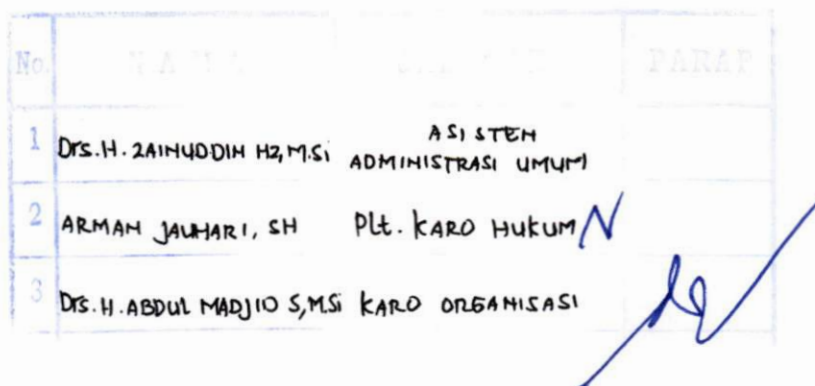 No. NAMA PARAF
1 Drs. H. ZAINUDDIN HZ, M.Si ASISTEN ADMINISTRASI UMUM
2 ARMAN JAUHARI, SH Plt. KARO HUKUM
3 Drs. H. ABDUL MADJID S, M.Si KARO ORGANISASI